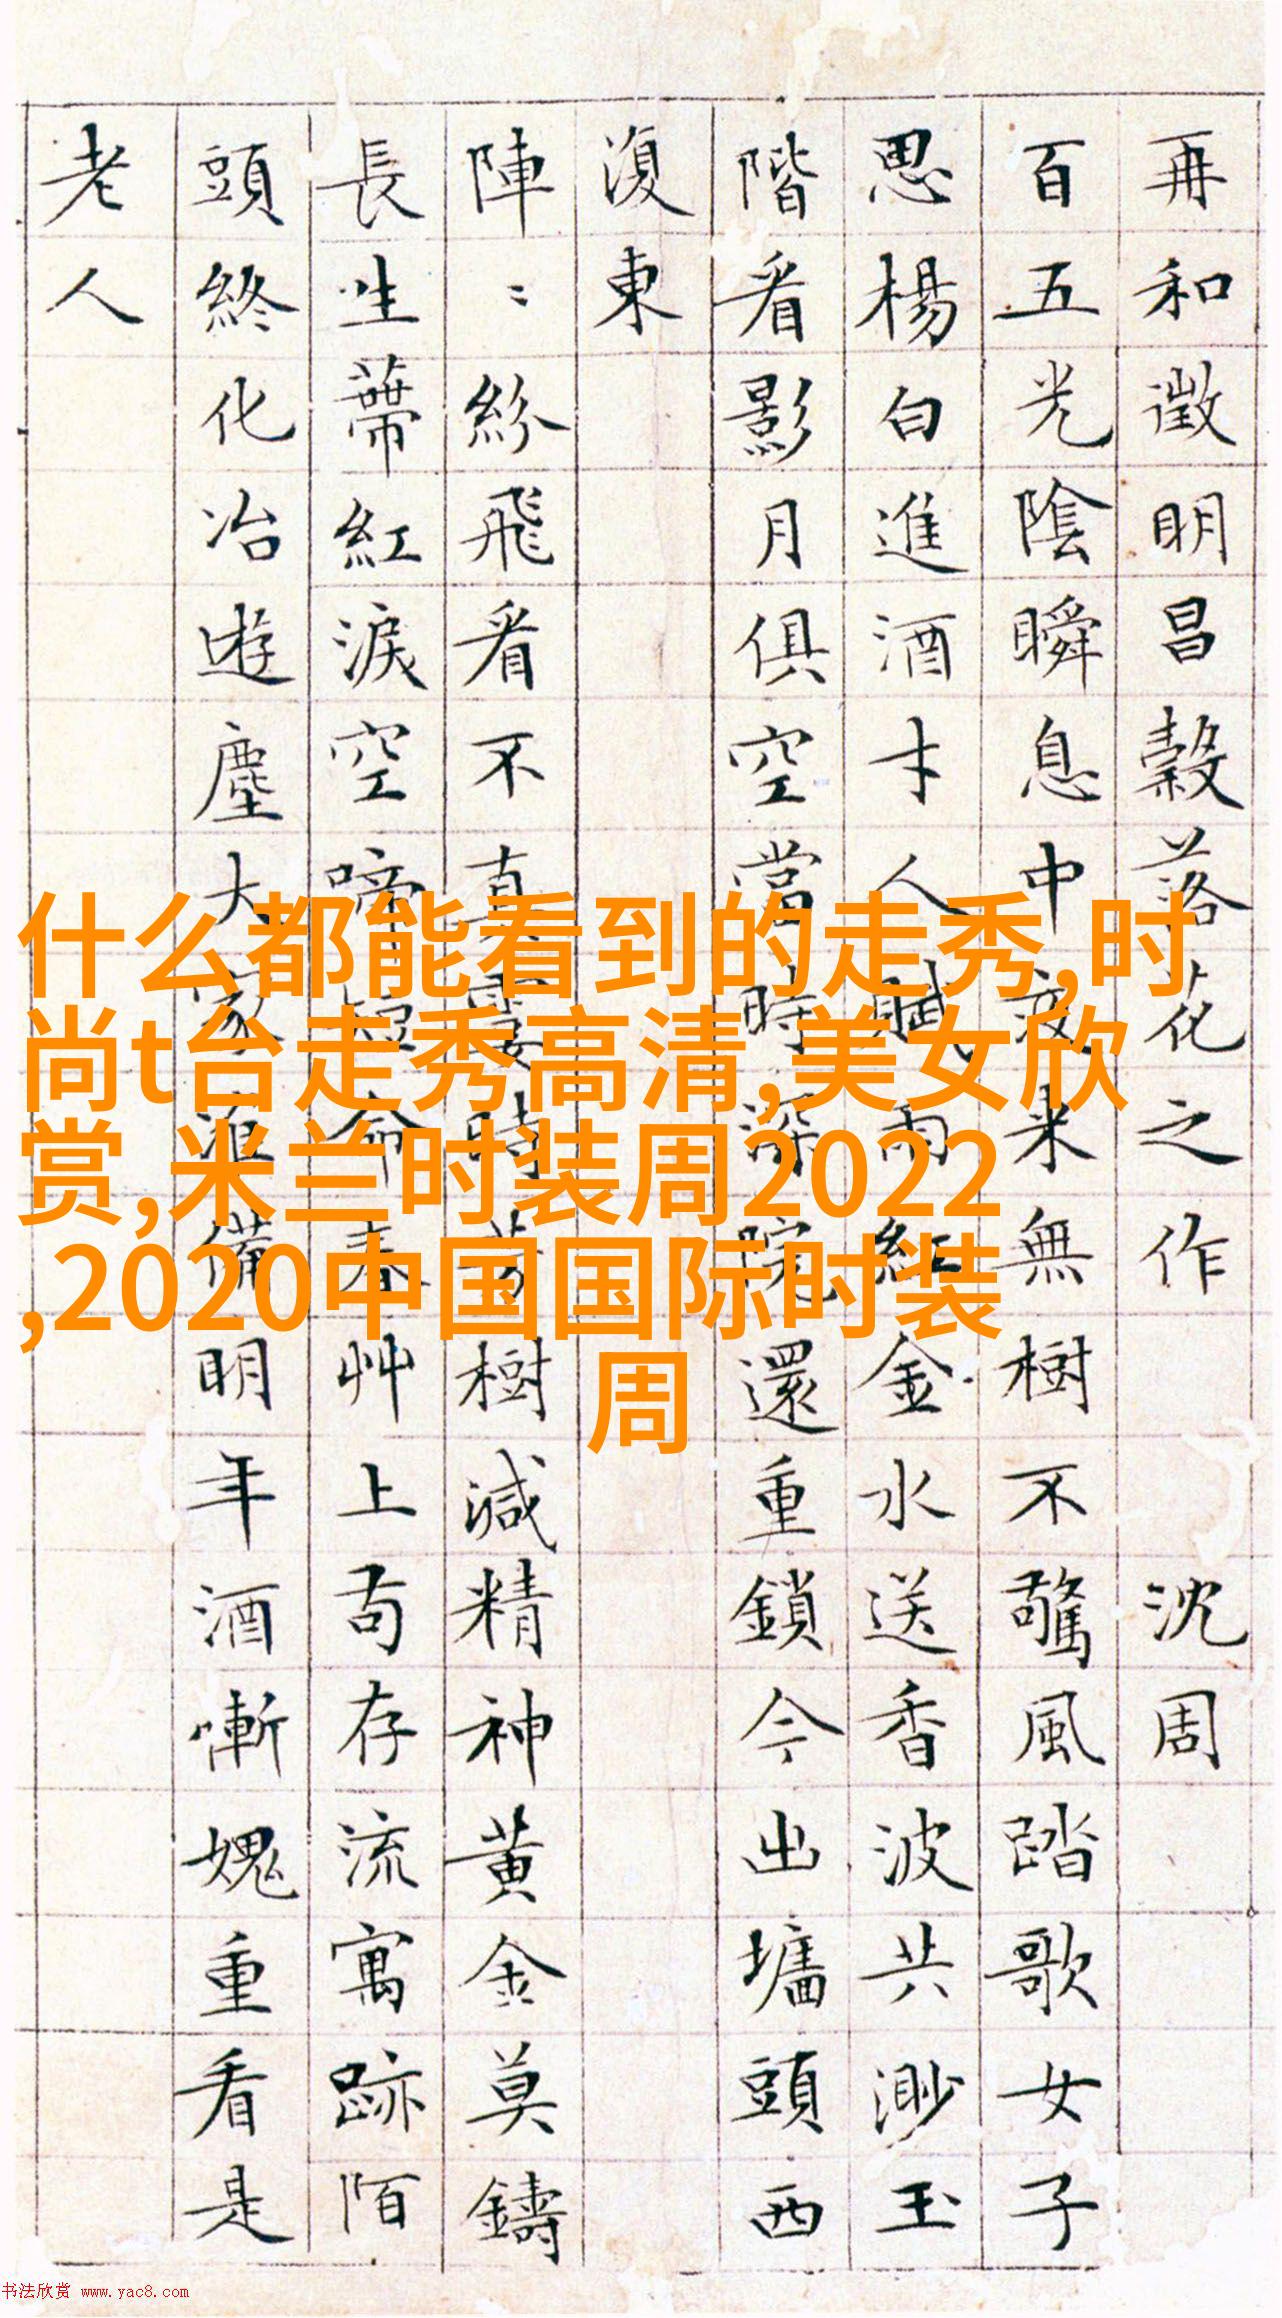 再和徵明昌穀落花之作 沈周
百五光陰瞬息中夜来無樹不驚風踏歌女子
思楊白進酒才人賦雨紅金水送香波共渺玉
階看影月俱空當時深院還重鎖今出墻頭西
復東
陣〻紛飛看不真霎時芳樹減精神黃金莫鑄
長生蒂紅淚空啼短命春艸上苟存流寓跡陌
頭終化冶遊塵大家準備明年酒慚媿重看是
老人
什么都能看到的走秀,时
尚t台走秀高清,美女欣
赏,米兰时装周2022
,2020中国国际时装
周
书法欣赏 www.yac8.com